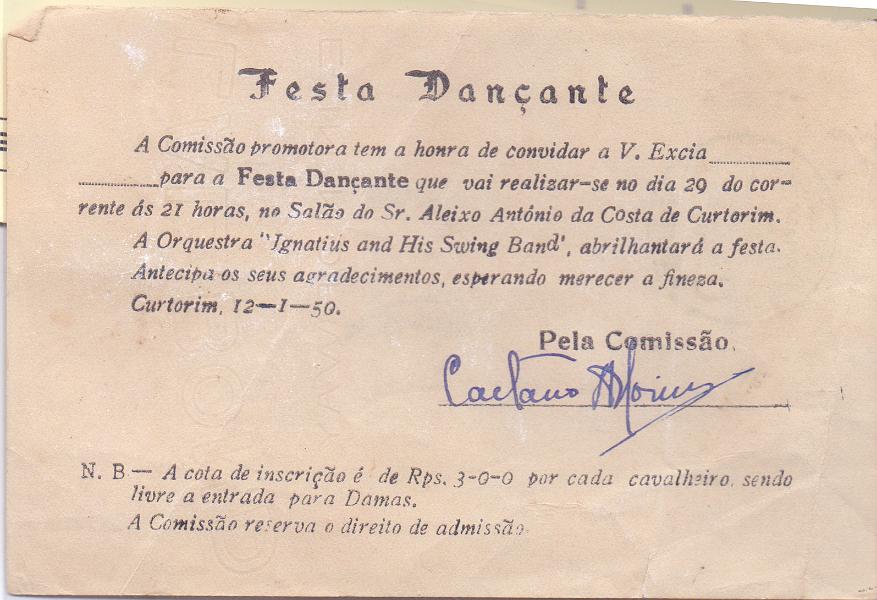 Festa Dançante
A Comissão promotora tem a honra de convidar a V. Excia..............
..............para a Festa Dançante que vai realizar-se no dia 29 do cor-
rente ás 21 horas, no Salão do Sr. Aleixo António da Costa de Curtorim.
A Orquestra "Ignatius and His Swing Band", abrilhantará a festa.
Antecipa os seus agradecimentos, esperando merecer a fineza.
Curtorim, 12—1—50.
Pela Comissão,
Caetano
N. B— A cota de inscrição é de Rps. 3-0-0 por cada cavalheiro, sendo
livre a entrada para Damas.
A Comissão reserva o direito de admissão